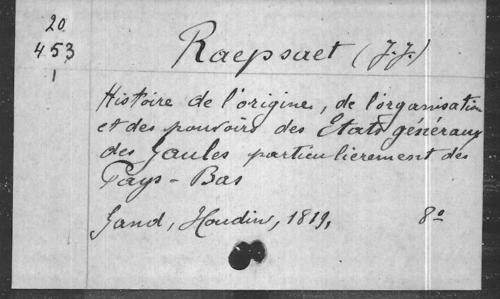 20
453
1
Raepsaet (J.J.)
Histoire de l'origine, de l'organisation
et des pouvoirs des Etats généraux
des Gaules particulierement des
Pays-Bas
Gand, Houdin, 1819, 8º